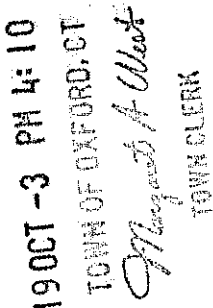 19 OCT -3 PM 4:10
TOWN OF OXFORD, CT
Margaret A West
TOWN CLERK